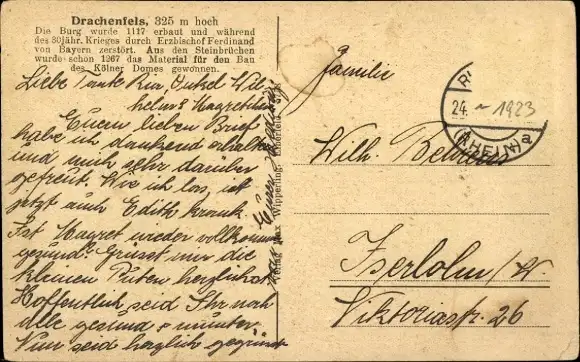 Drachenfels, 325 m hoch
Die Burg wurde 1117 erbaut und während
des 30jähr. Krieges durch Erzbischof Ferdinand
von Bayern zerstört. Aus den Steinbrüchen
wurde schon 1267 das Material für den Bau
des Kölner Domes gewonnen.
Liebe Tante Ria, Onkel Wil-
helm & Magretchen
Euern lieben Brief
habe ich dankend erhalten
und mich sehr darüber
gefreut. Wie ich las, ist
jetzt auch Edith krank.
Ist Magret wieder vollkommen
gesund? Grüsst mir die
kleinen Puten herzlichst.
Hoffentlich seid Ihr noch
alle gesund & munter.
Nun seid herzlich gegrüsst
Verlag Max Wipperling
Familie
Wilh. Behrens
Iserlohn i/W.
Viktoriastr. 26
24. 1923
(RHEIN)